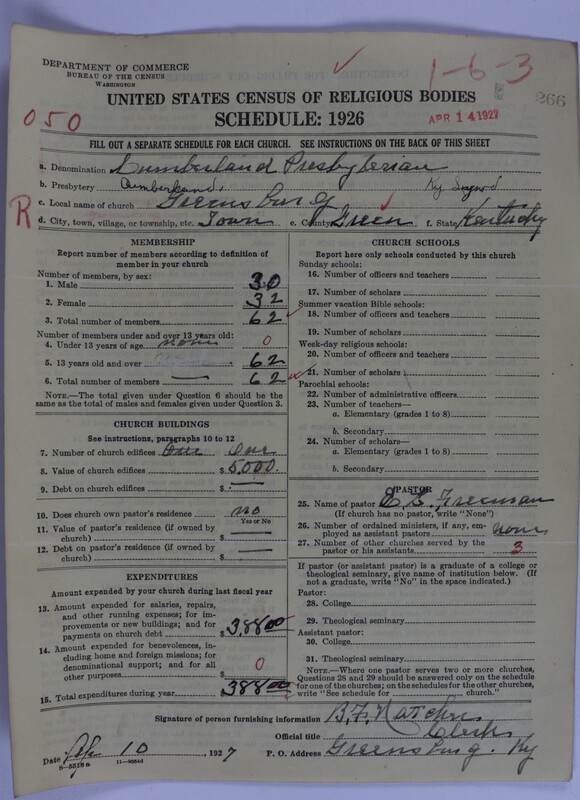 DEPARTMENT OF COMMERCE
BUREAU OF THE CENSUS
WASHINGTON
1-6-3
266
UNITED STATES CENSUS OF RELIGIOUS BODIES
SCHEDULE: 1926
APR 14 1927
050
FILL OUT A SEPARATE SCHEDULE FOR EACH CHURCH. SEE INSTRUCTIONS ON THE BACK OF THIS SHEET
a. Denomination Cumberland Presbyterian
b. Presbytery Cumberland, Ky
R
c. Local name of church Greensburg
d. City, town, village, or township, etc. Town e. County Green f. State Kentucky
MEMBERSHIP
Report number of members according to definition of member in your church
Number of members, by sex:
1. Male 30
2. Female 32
3. Total number of members 62
Number of members under and over 13 years old:
4. Under 13 years of age none 0
5. 13 years old and over 62
6. Total number of members 62
NOTE.—The total given under Question 6 should be the same as the total of males and females given under Question 3.
CHURCH BUILDINGS
See instructions, paragraphs 10 to 12
7. Number of church edifices One One
8. Value of church edifices $5,000.
9. Debt on church edifices $
10. Does church own pastor's residence? no
Yes or No
11. Value of pastor's residence (if owned by church) $
12. Debt on pastor's residence (if owned by church) $
EXPENDITURES
Amount expended by your church during last fiscal year
13. Amount expended for salaries, repairs, and other running expenses; for improvements or new buildings; and for payments on church debt $388 00
14. Amount expended for benevolences, including home and foreign missions; for denominational support; and for all other purposes $ 0
15. Total expenditures during year 388 00
CHURCH SCHOOLS
Report here only schools conducted by this church
Sunday schools:
16. Number of officers and teachers
17. Number of scholars
Summer vacation Bible schools:
18. Number of officers and teachers
19. Number of scholars
Week-day religious schools:
20. Number of officers and teachers
21. Number of scholars
Parochial schools:
22. Number of administrative officers
23. Number of teachers—
a. Elementary (grades 1 to 8)
b. Secondary
24. Number of scholars—
a. Elementary (grades 1 to 8)
b. Secondary
PASTOR
25. Name of pastor Freeman
(If church has no pastor, write "None")
26. Number of ordained ministers, if any, employed as assistant pastors none
27. Number of other churches served by the pastor or his assistants 3
If pastor (or assistant pastor) is a graduate of a college or theological seminary, give name of institution below. (If not a graduate, write "No" in the space indicated.)
Pastor:
28. College
29. Theological seminary
Assistant pastor:
30. College
31. Theological seminary
NOTE.—Where one pastor serves two or more churches, Questions 28 and 29 should be answered only on the schedule for one of the churches; on the schedules for the other churches, write "See schedule for church."
Signature of person furnishing information B.F.
Official title Clerk
Date 10, 1927 P. O. Address Greensburg. Ky